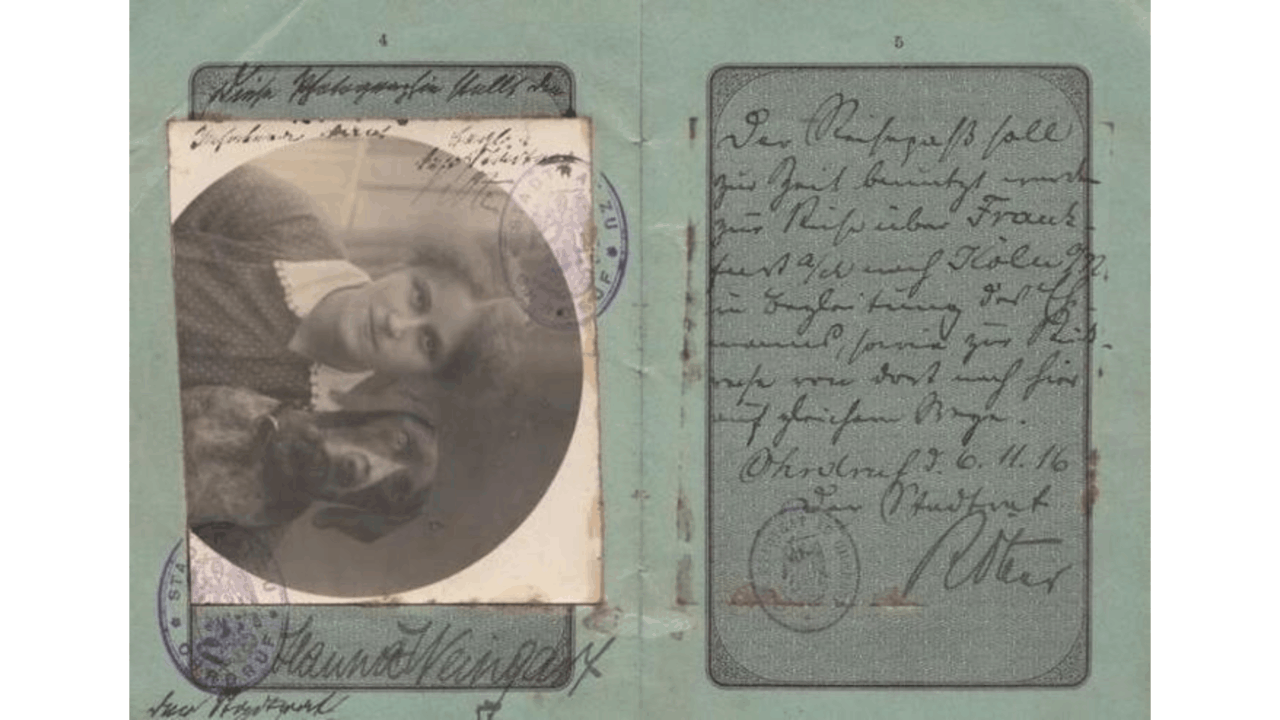 4
Diese Photographie stellt den
Inhaberin
STA
OHRDRUF
Hanna Weingart
Der Stadtrat
5
Der Reisepaß soll
zur Zeit benutzt werden
zur Reise über Frank-
furt a/M nach Köln a/R.
in Begleitung des Ehe-
manns, sowie zur Rück-
reise von dort nach hier
auf gleichem Wege.
Ohrdruf d. 6. 11. 16
Der Stadtrat